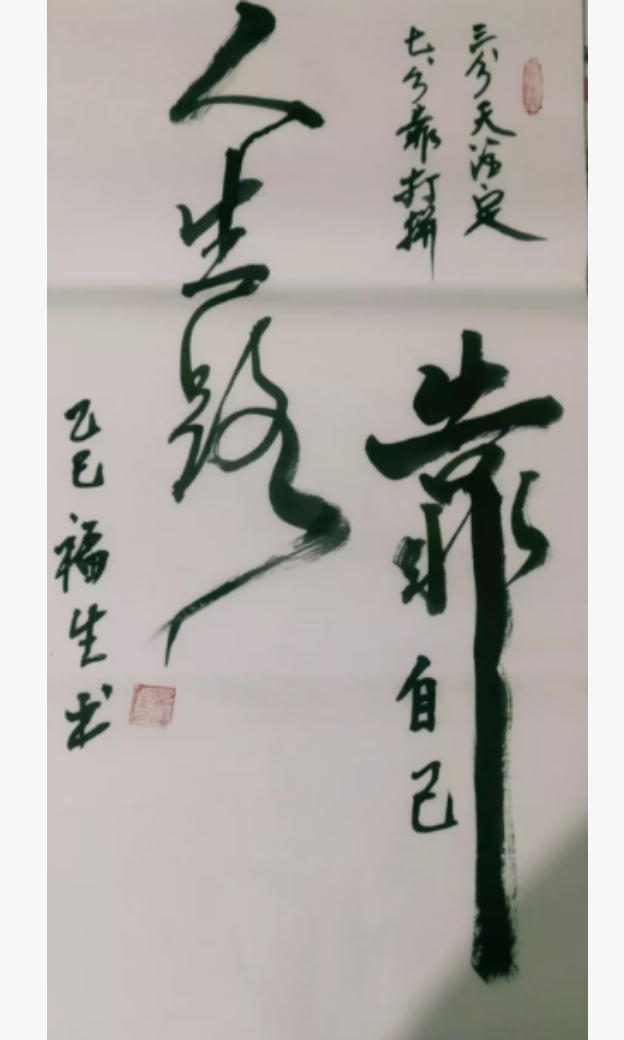 三分天注定
七分靠打拼
靠自己
人生路
乙巳福生书